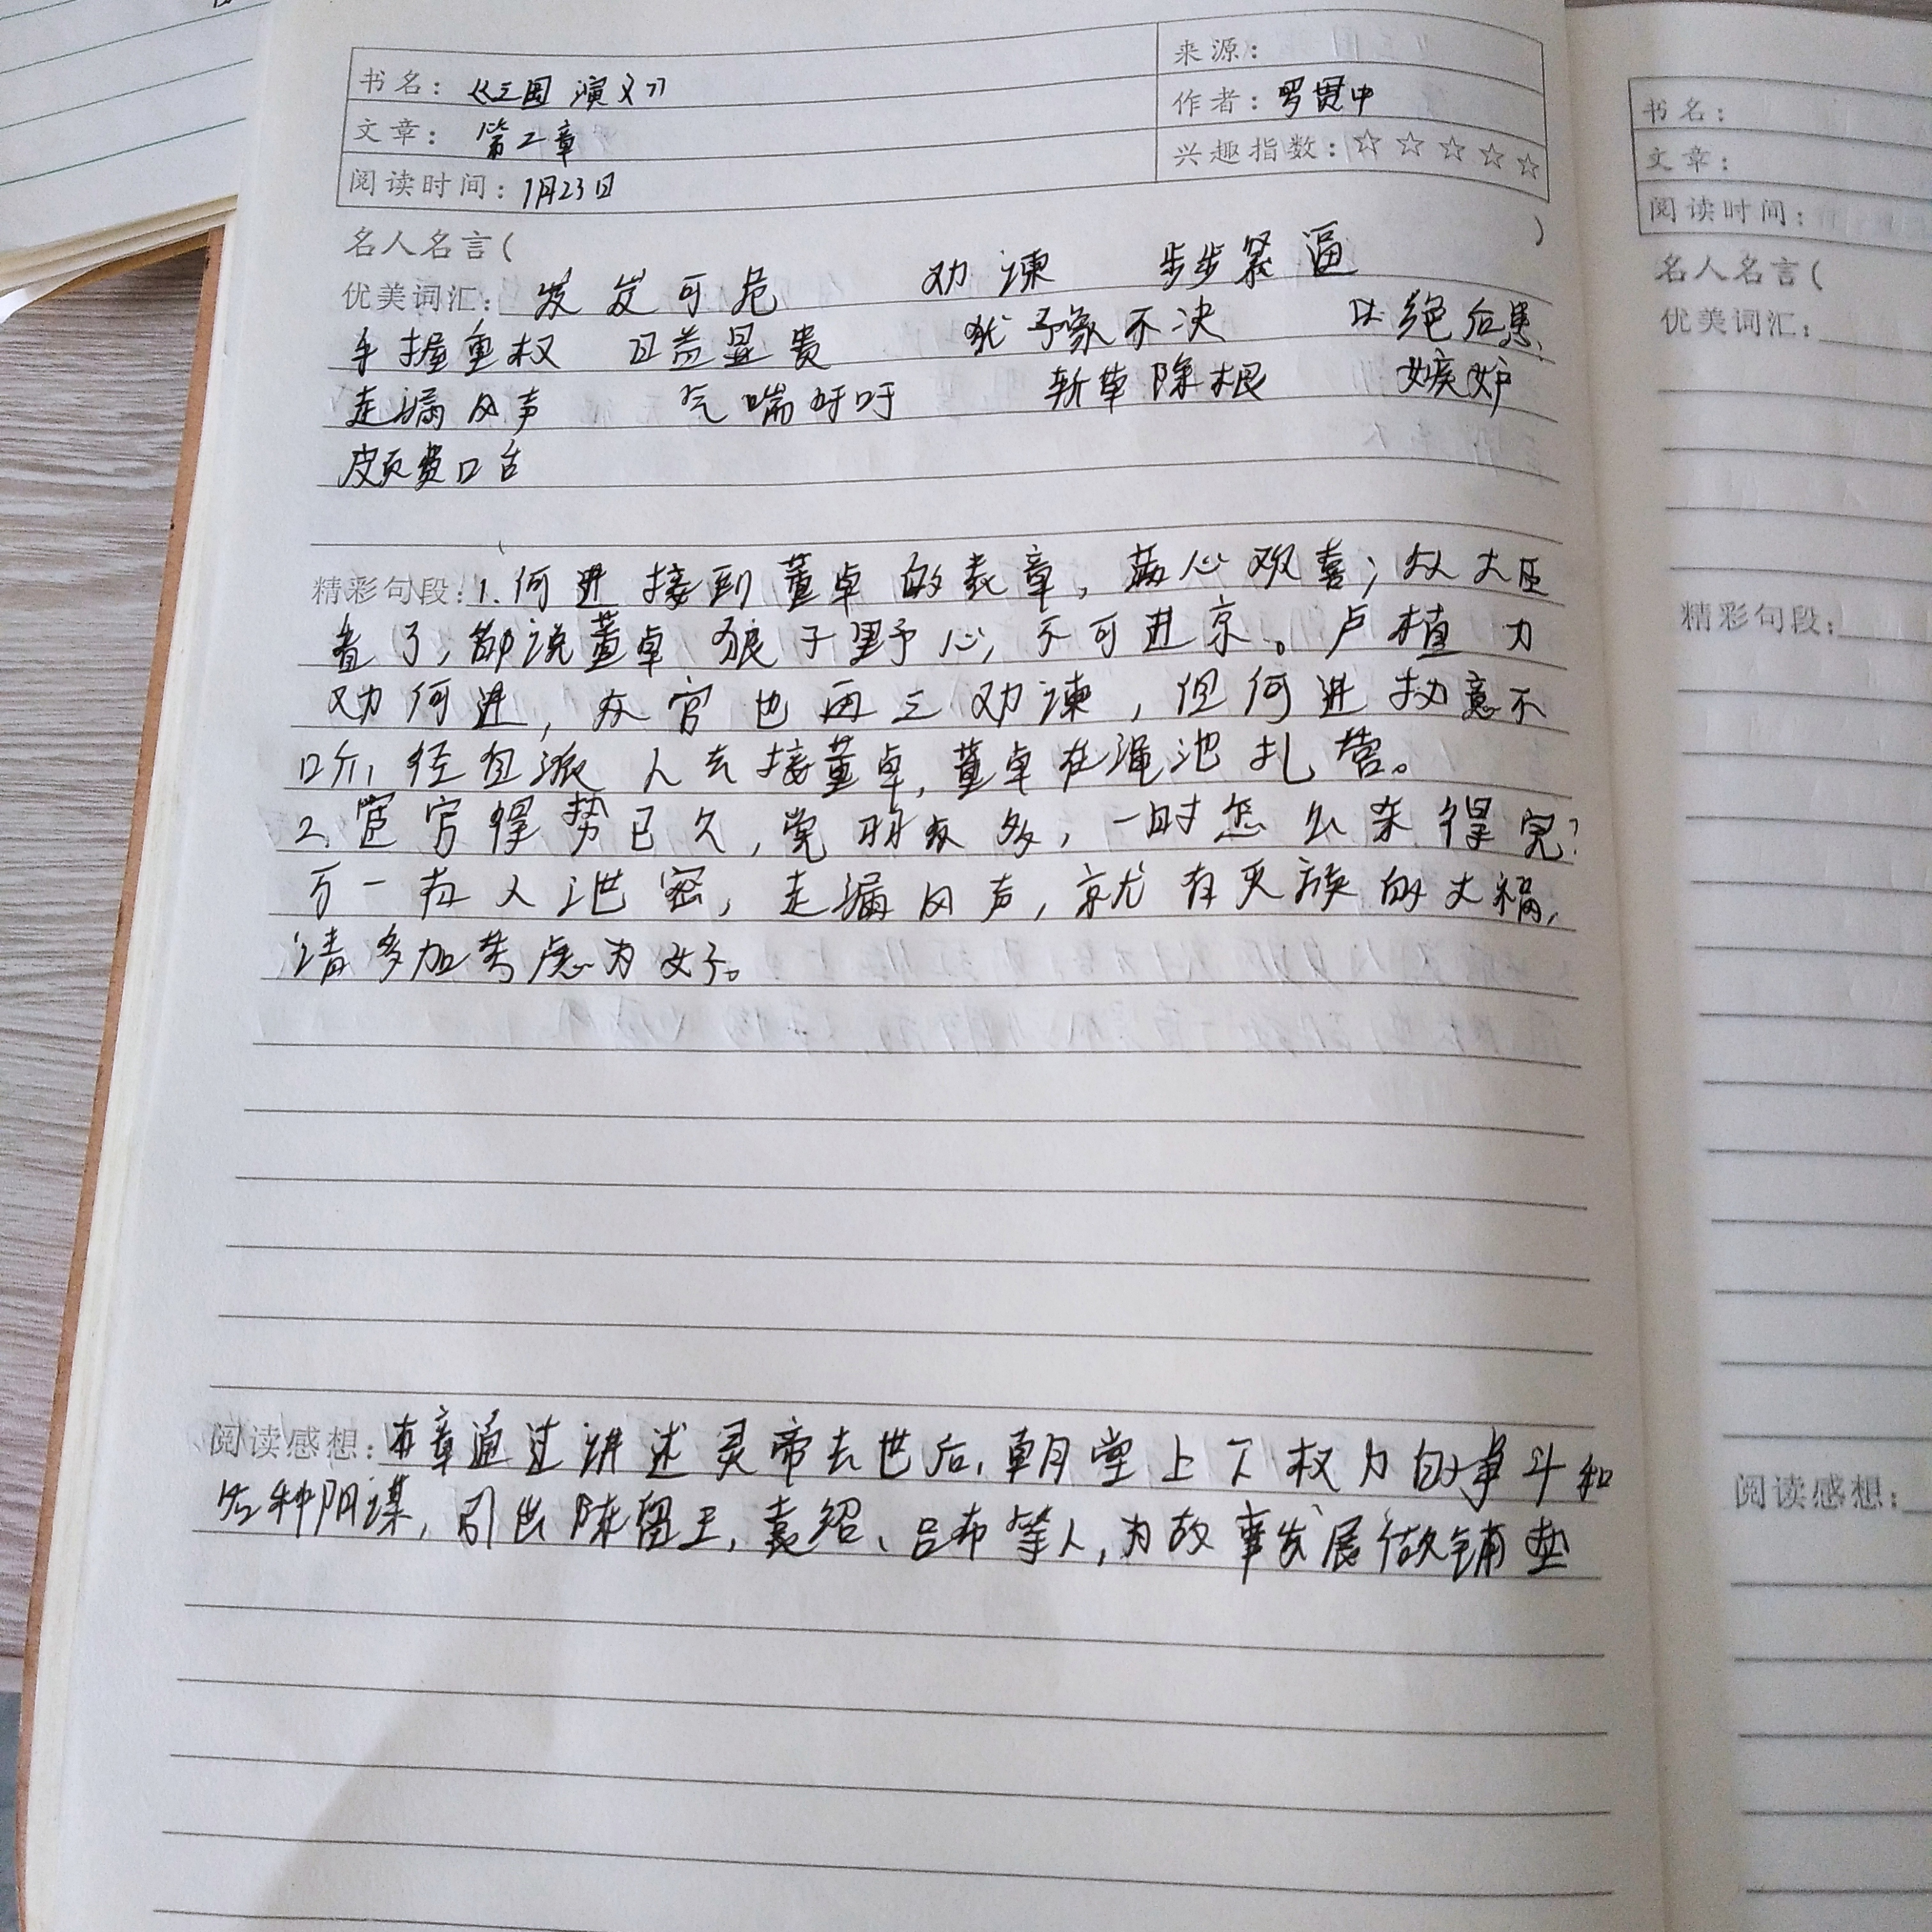 书名：《三国演义》
来源：
作者：罗贯中
文章：第二章
兴趣指数：☆☆☆☆☆
阅读时间：1月23日
名人名言（ ）
优美词汇：岌岌可危 劝谏 步步紧逼
手握重权 日益显贵 犹予豫不决 以绝后患、
走漏风声 气喘吁吁 斩草除根 嫉妒
颇费口舌
精彩句段：1.何进接到董卓的表章，满心欢喜；众大臣
看了，都说董卓狼子野心，不可进京。卢植力
劝何进，众官也再三劝谏，但何进执意不
听，径自派人去接董卓，董卓在渑池扎营。
2.宦官得势已久，党羽众多，一时怎么杀得完？
万一有人泄密，走漏风声，就有灭族的大祸，
请多加考虑为好。
阅读感想：本章通过讲述灵帝去世后，朝堂上下权力的争斗和
各种阴谋，引出陈留王，袁绍、吕布等人，为故事发展做铺垫
书名：
文章：
阅读时间：
名人名言（
优美词汇：
精彩句段：
阅读感想：